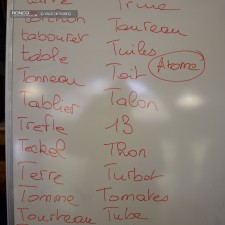 RONCO
Terre Truie
Torchon Taureau
tabouret Tuiles
table Toit Atome
Tonneau Talon
Tablier 13
Trefle Thon
Teckel Turbot
Terre Tomates
Tomme Tube
Tourteau